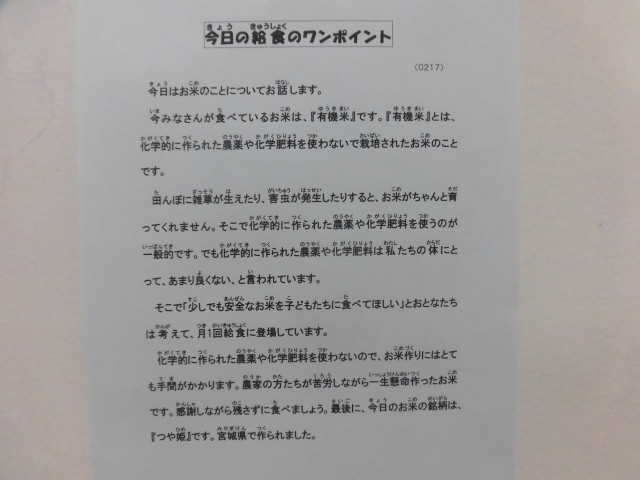 今日の給食のワンポイント
(0217)
今日はお米のことについてお話します。
今みなさんが食べているお米は、『有機米』です。『有機米』とは、
化学的に作られた農薬や化学肥料を使わないで栽培されたお米のこと
です。
田んぼに雑草が生えたり、害虫が発生したりすると、お米がちゃんと育
ってくれません。そこで化学的に作られた農薬や化学肥料を使うのが
一般的です。でも化学的に作られた農薬や化学肥料は私たちの体にと
って、あまり良くない、と言われています。
そこで「少しでも安全なお米を子どもたちに食べてほしい」とおとなたち
は考えて、月1回給食に登場しています。
化学的に作られた農薬や化学肥料を使わないので、お米作りにはとて
も手間がかかります。農家の方たちが苦労しながら一生懸命作ったお米
です。感謝しながら残さずに食べましょう。最後に、今日のお米の銘柄は、
『つや姫』です。宮城県で作られました。